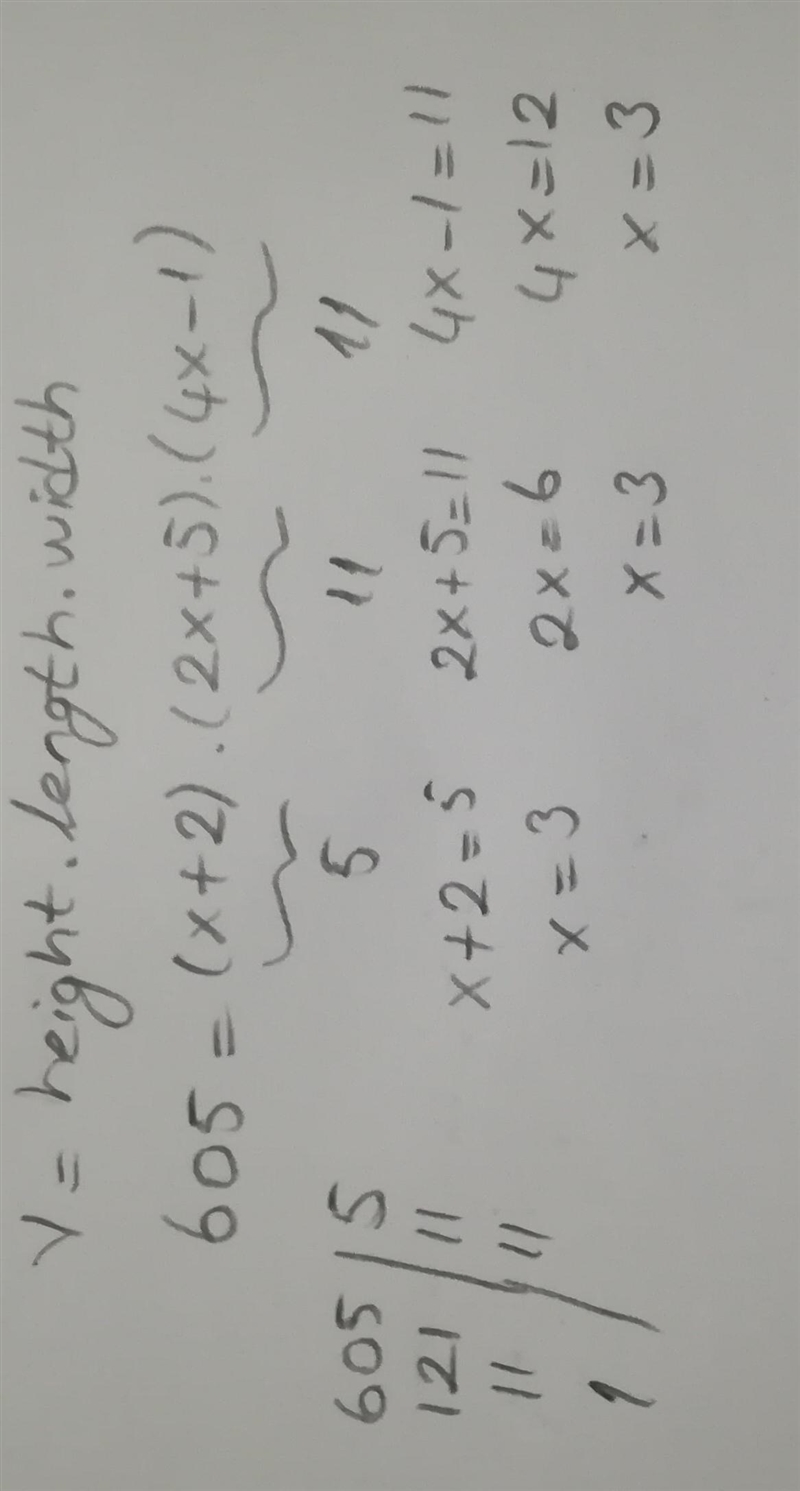 V = height . length . width
605 = (x+2) . (2x+5) . (4x-1)
605 | 5 5 11 11
121 | 11 x+2=5 2x+5=11 4x-1=11
11 | 11 x=3 2x=6 4x=12
1 | x=3 x=3